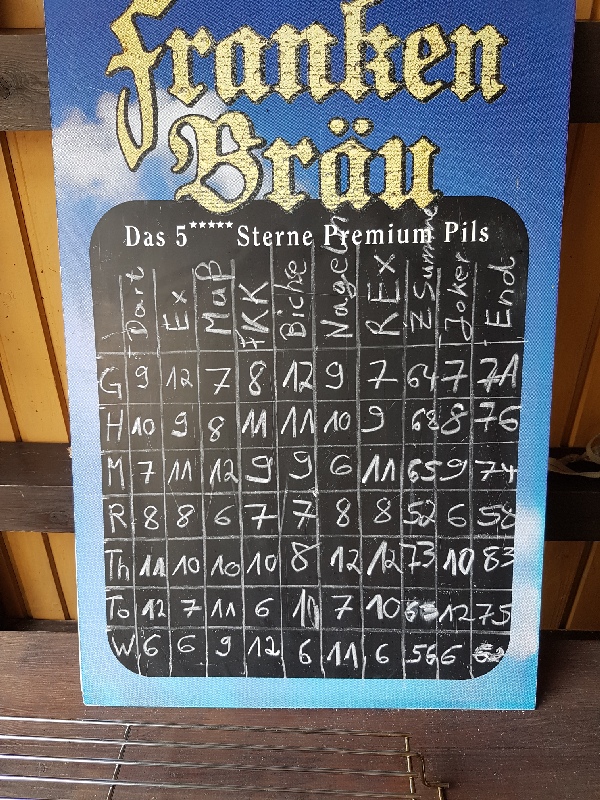 Franken
Bräu
Das 5***** Sterne Premium Pils
Dart Ex Maß KK Biche Nageln REx ZSumme Joker End
G 9 12 7 8 12 9 7 64 7 71
H 10 9 8 11 11 10 9 68 8 76
M 7 11 12 9 9 6 11 65 9 74
R 8 8 6 7 7 8 8 52 6 58
Th 11 10 10 10 8 12 12 73 10 83
To 12 7 11 6 10 7 10 63 12 75
W 6 6 9 12 6 11 6 56 6